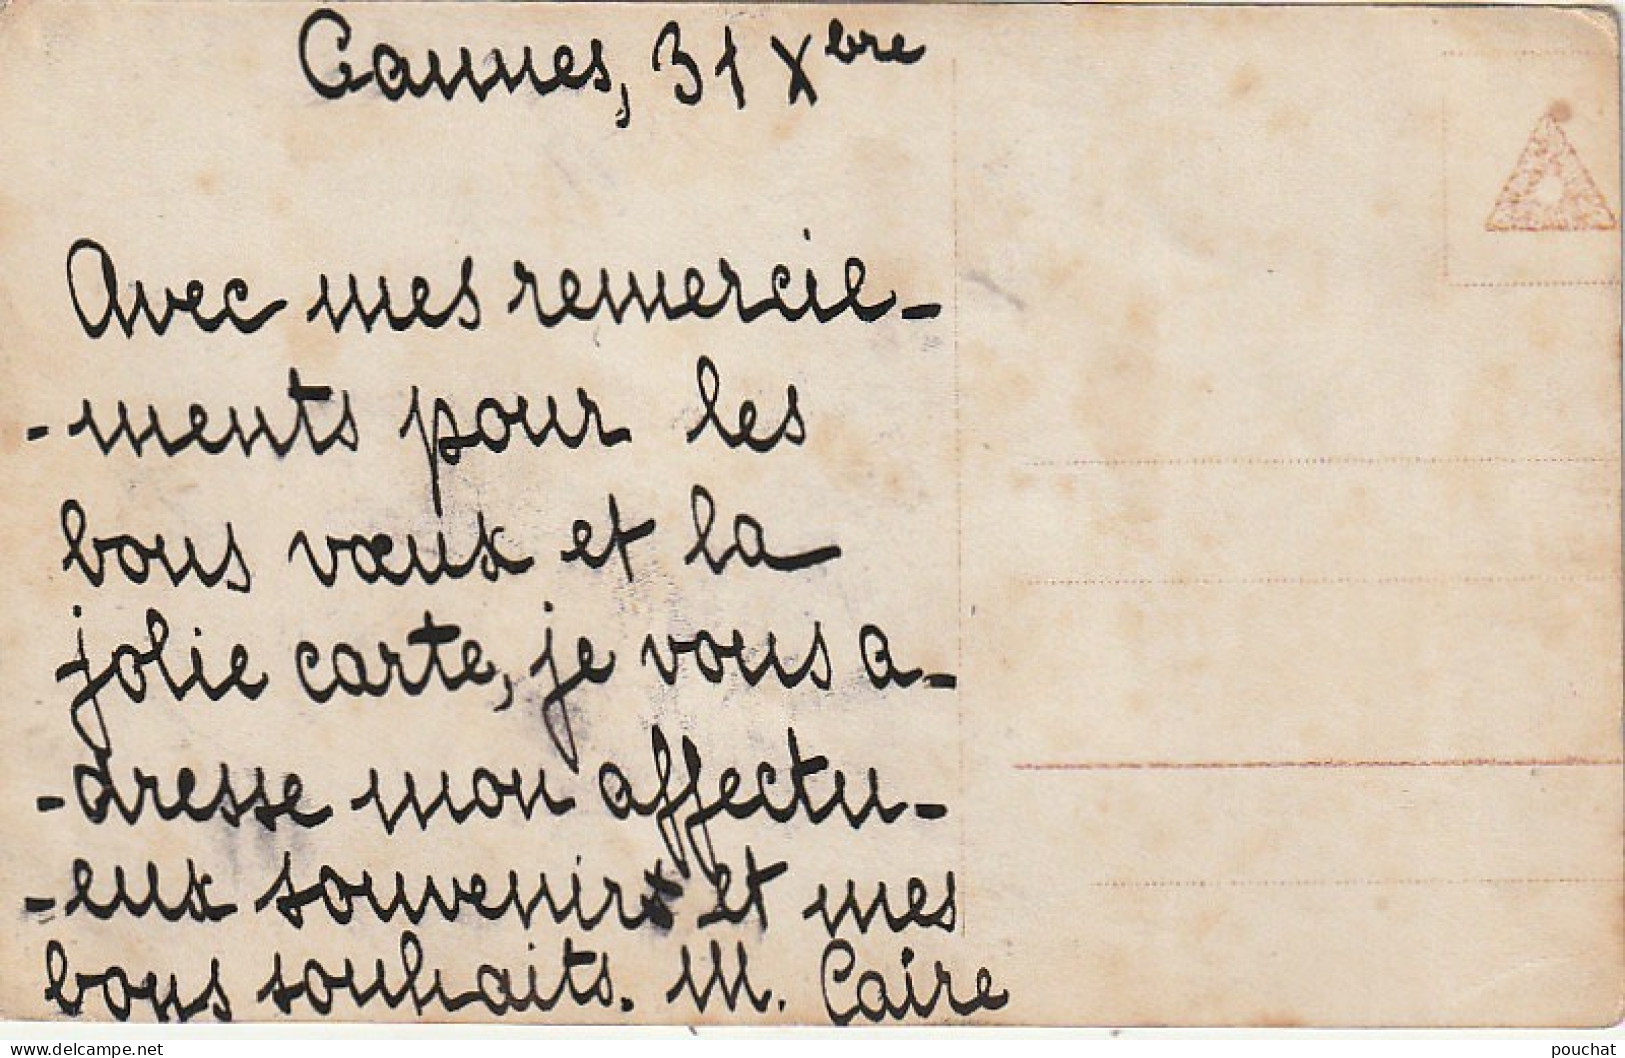 Cannes, 31 Xbre
Avec mes remercie-
-ments pour les
bons vœux et la
jolie carte, je vous a-
-dresse mon affectu-
-eux souvenir et mes
bons souhaits. M. Caire
www.delcampe.net
pouchat